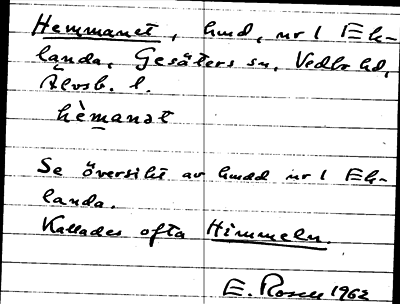 Hemmanet, hmd, nr 1 Ek-
landa, Gesäters sn, Vedbo hd,
Älvsb. l.
hèmanət
Se översikt av hmdd nr 1 Ek-
landa.
Kallades ofta Himmeln.
E. Rosen 1962